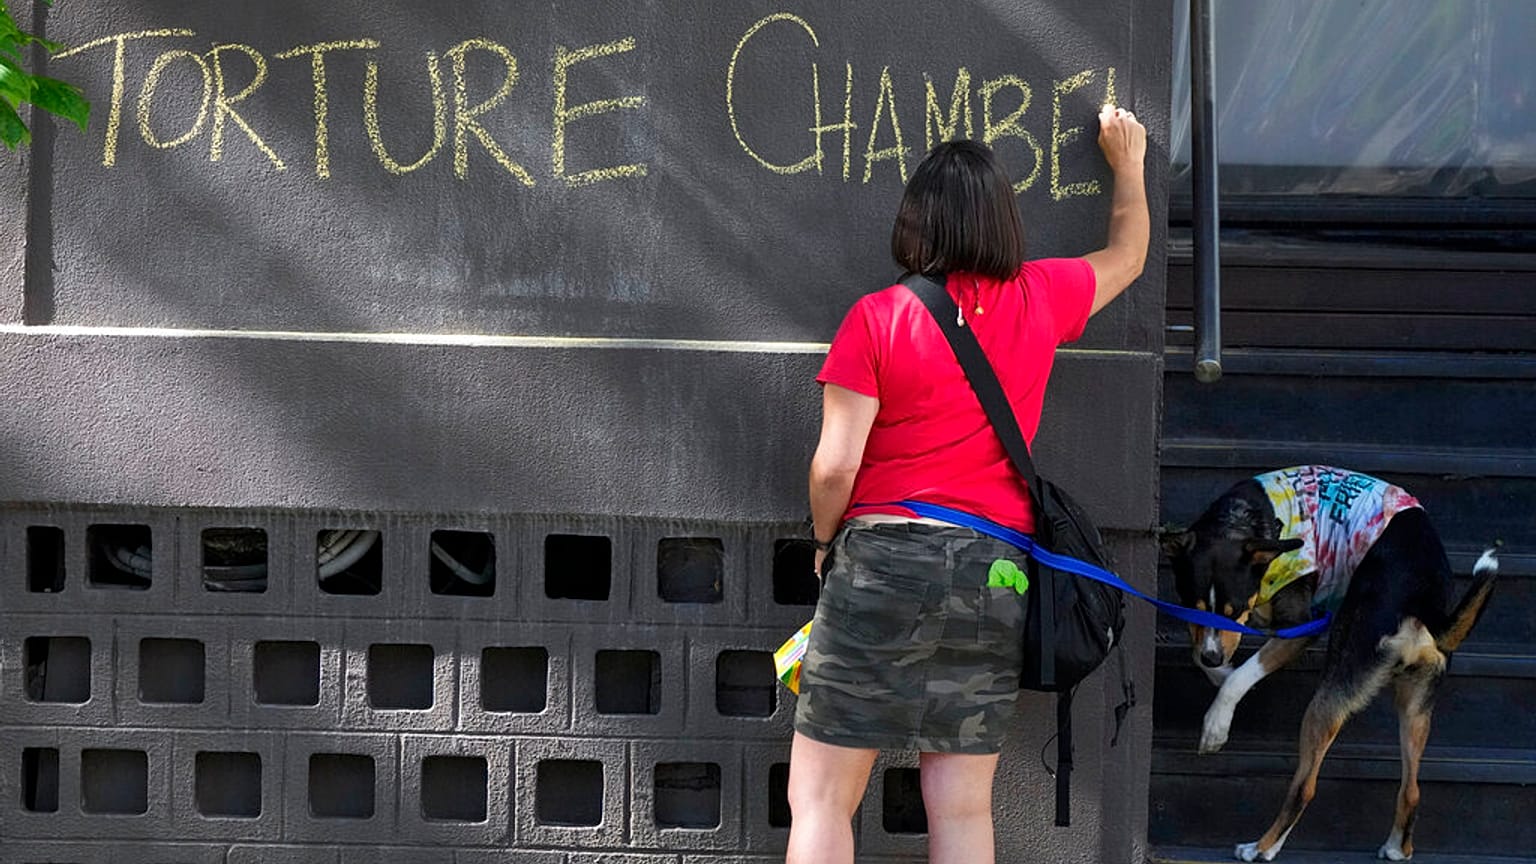 TORTURE CHAMBE